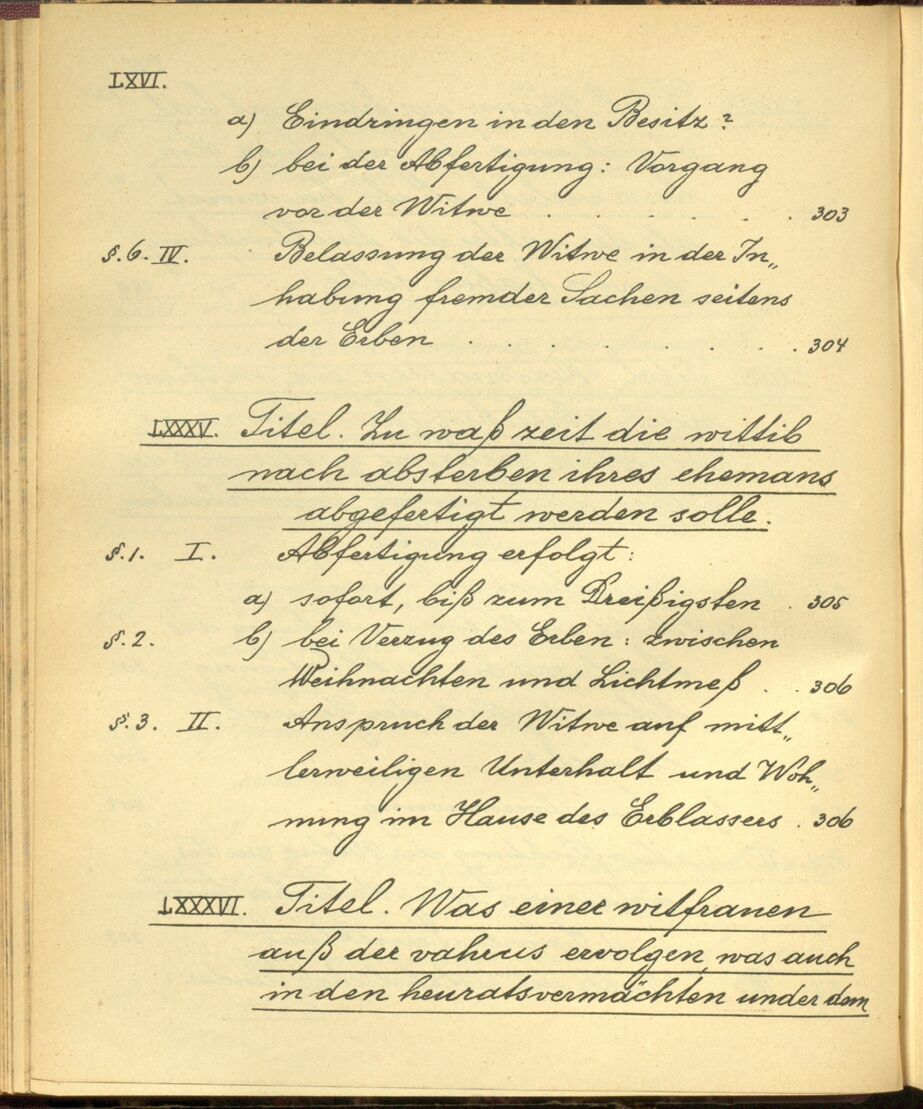 LXVI.
a) Eindringen in den Besitz?
b) bei der Abfertigung: Vorgang
vor der Witwe . . . . . . . 303
§. 6. IV. Belassung der Witwe in der In„
habung fremder Sachen seitens
der Erben . . . . . . . . 304
LXXXV. Titel. Zu waß zeit die wittib
nach absterben ihres ehemans
abgefertigt werden solle.
§. 1. I. Abfertigung erfolgt:
a) sofort, biß zum Dreißigsten . 305
§. 2. b) bei Verzug des Erben: zwischen
Weihnachten und Lichtmeß . . 306
§. 3. II. Anspruch der Witwe auf mitt„
lerweiligen Unterhalt und Woh„
nung im Hause des Erblassers . 306
LXXXVI. Titel. Was einer witfrauen
auß der vahrus ervolgen, was auch
in den heuratsvermächten under dem